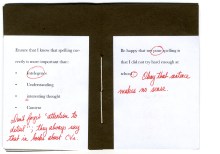 Ensure that I know that spelling cor-
rectly is more important than:
• Intelligence
• Understanding
• interesting thought
• Content
Don't forget "attention to
detail"; they always say
that in books about CVs.
Be happy that my your spelling is
that I did not try hard enough at
school. Okay that sentence
makes no sense.